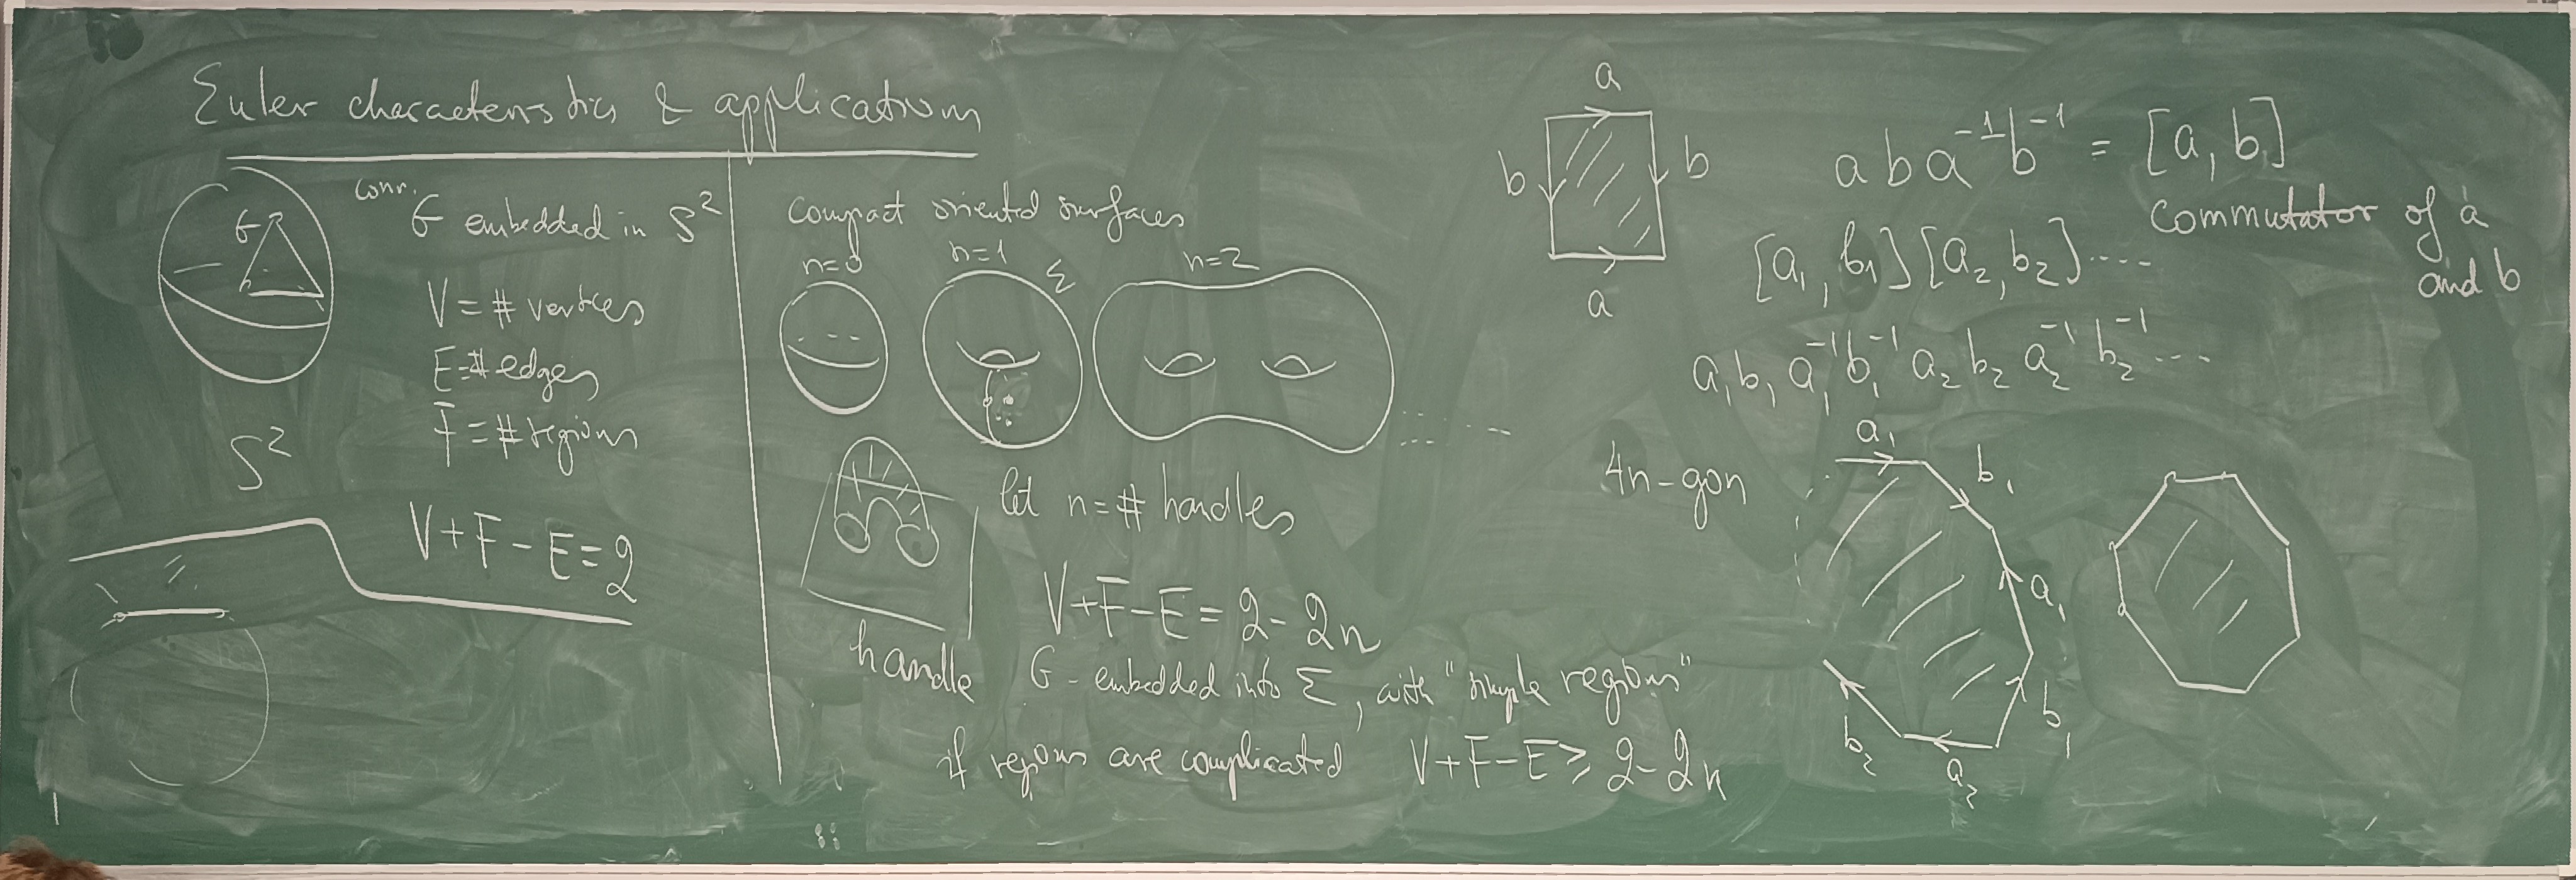 Euler characteristics & applications
conn.
G embedded in S²
G
V = # vertices
E = # edges
F = # regions
S²
V + F - E = 2
compact oriented surfaces
n=0
n=1
Σ
n=2
handle
let n = # handles
V + F - E = 2 - 2n
G - embedded into Σ, with "simple regions"
if regions are complicated V + F - E ≥ 2 - 2n
a
b
b
a
a b a⁻¹ b⁻¹ = [a, b]
commutator of a
and b
[a₁, b₁][a₂, b₂]....
a₁ b₁ a₁⁻¹ b₁⁻¹ a₂ b₂ a₂⁻¹ b₂⁻¹ ...
4n-gon
a₁
b₁
a₁
b₁
a₂
b₂